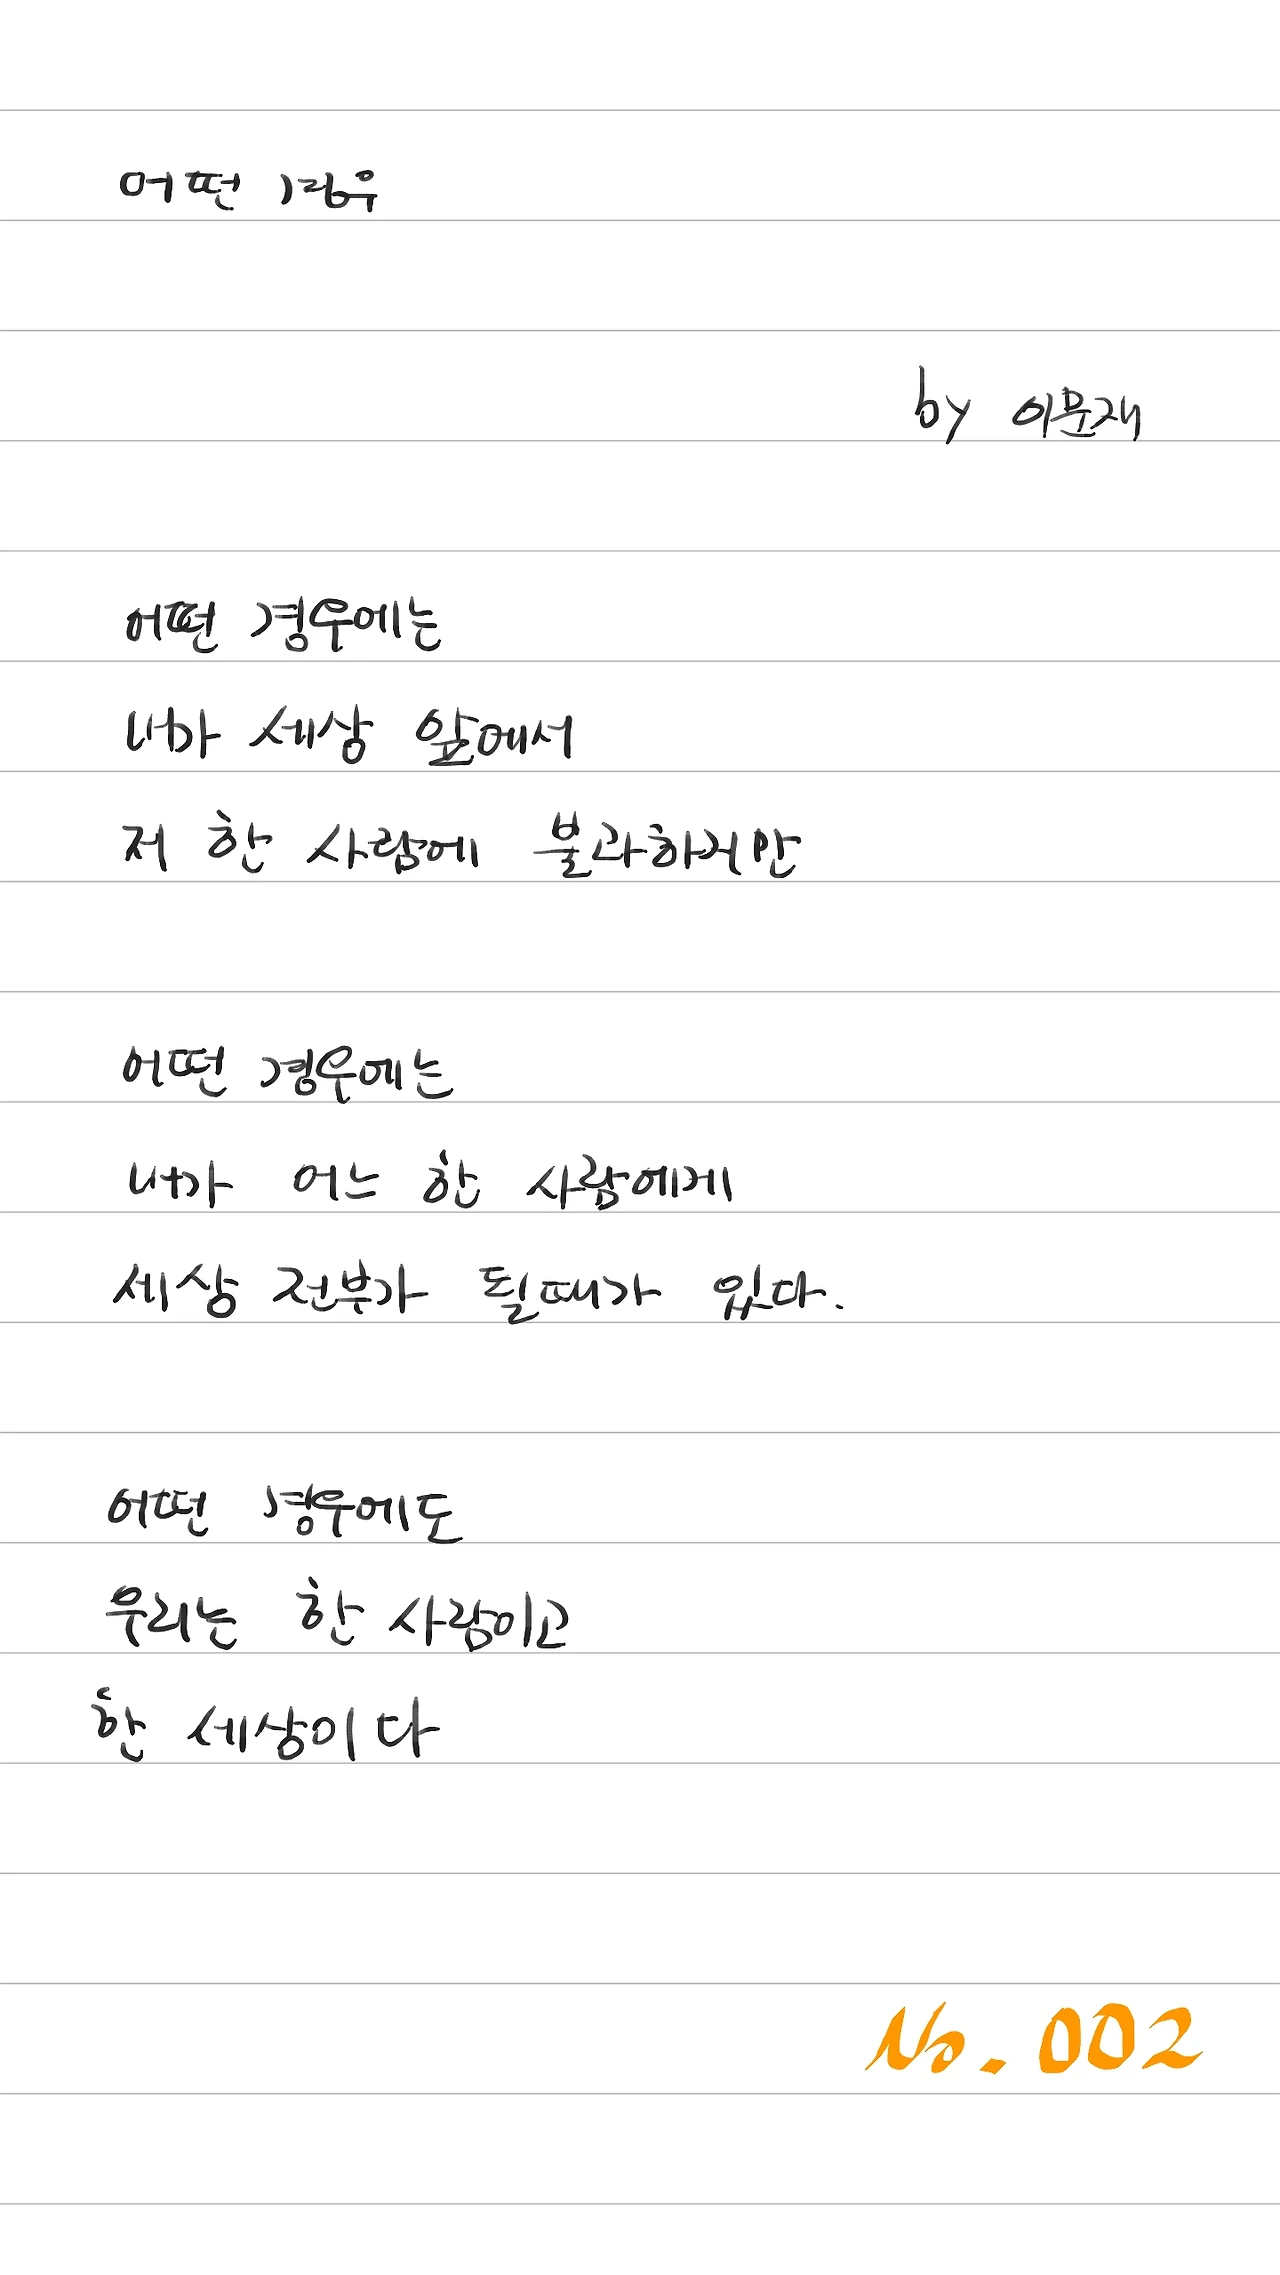 어떤 경우
by 이문재
어떤 경우에는
내가 세상 앞에서
저 한 사람에 불과하지만
어떤 경우에는
내가 어느 한 사람에게
세상 전부가 될때가 있다.
어떤 경우에도
우리는 한 사람이고
한 세상이다
No. 002